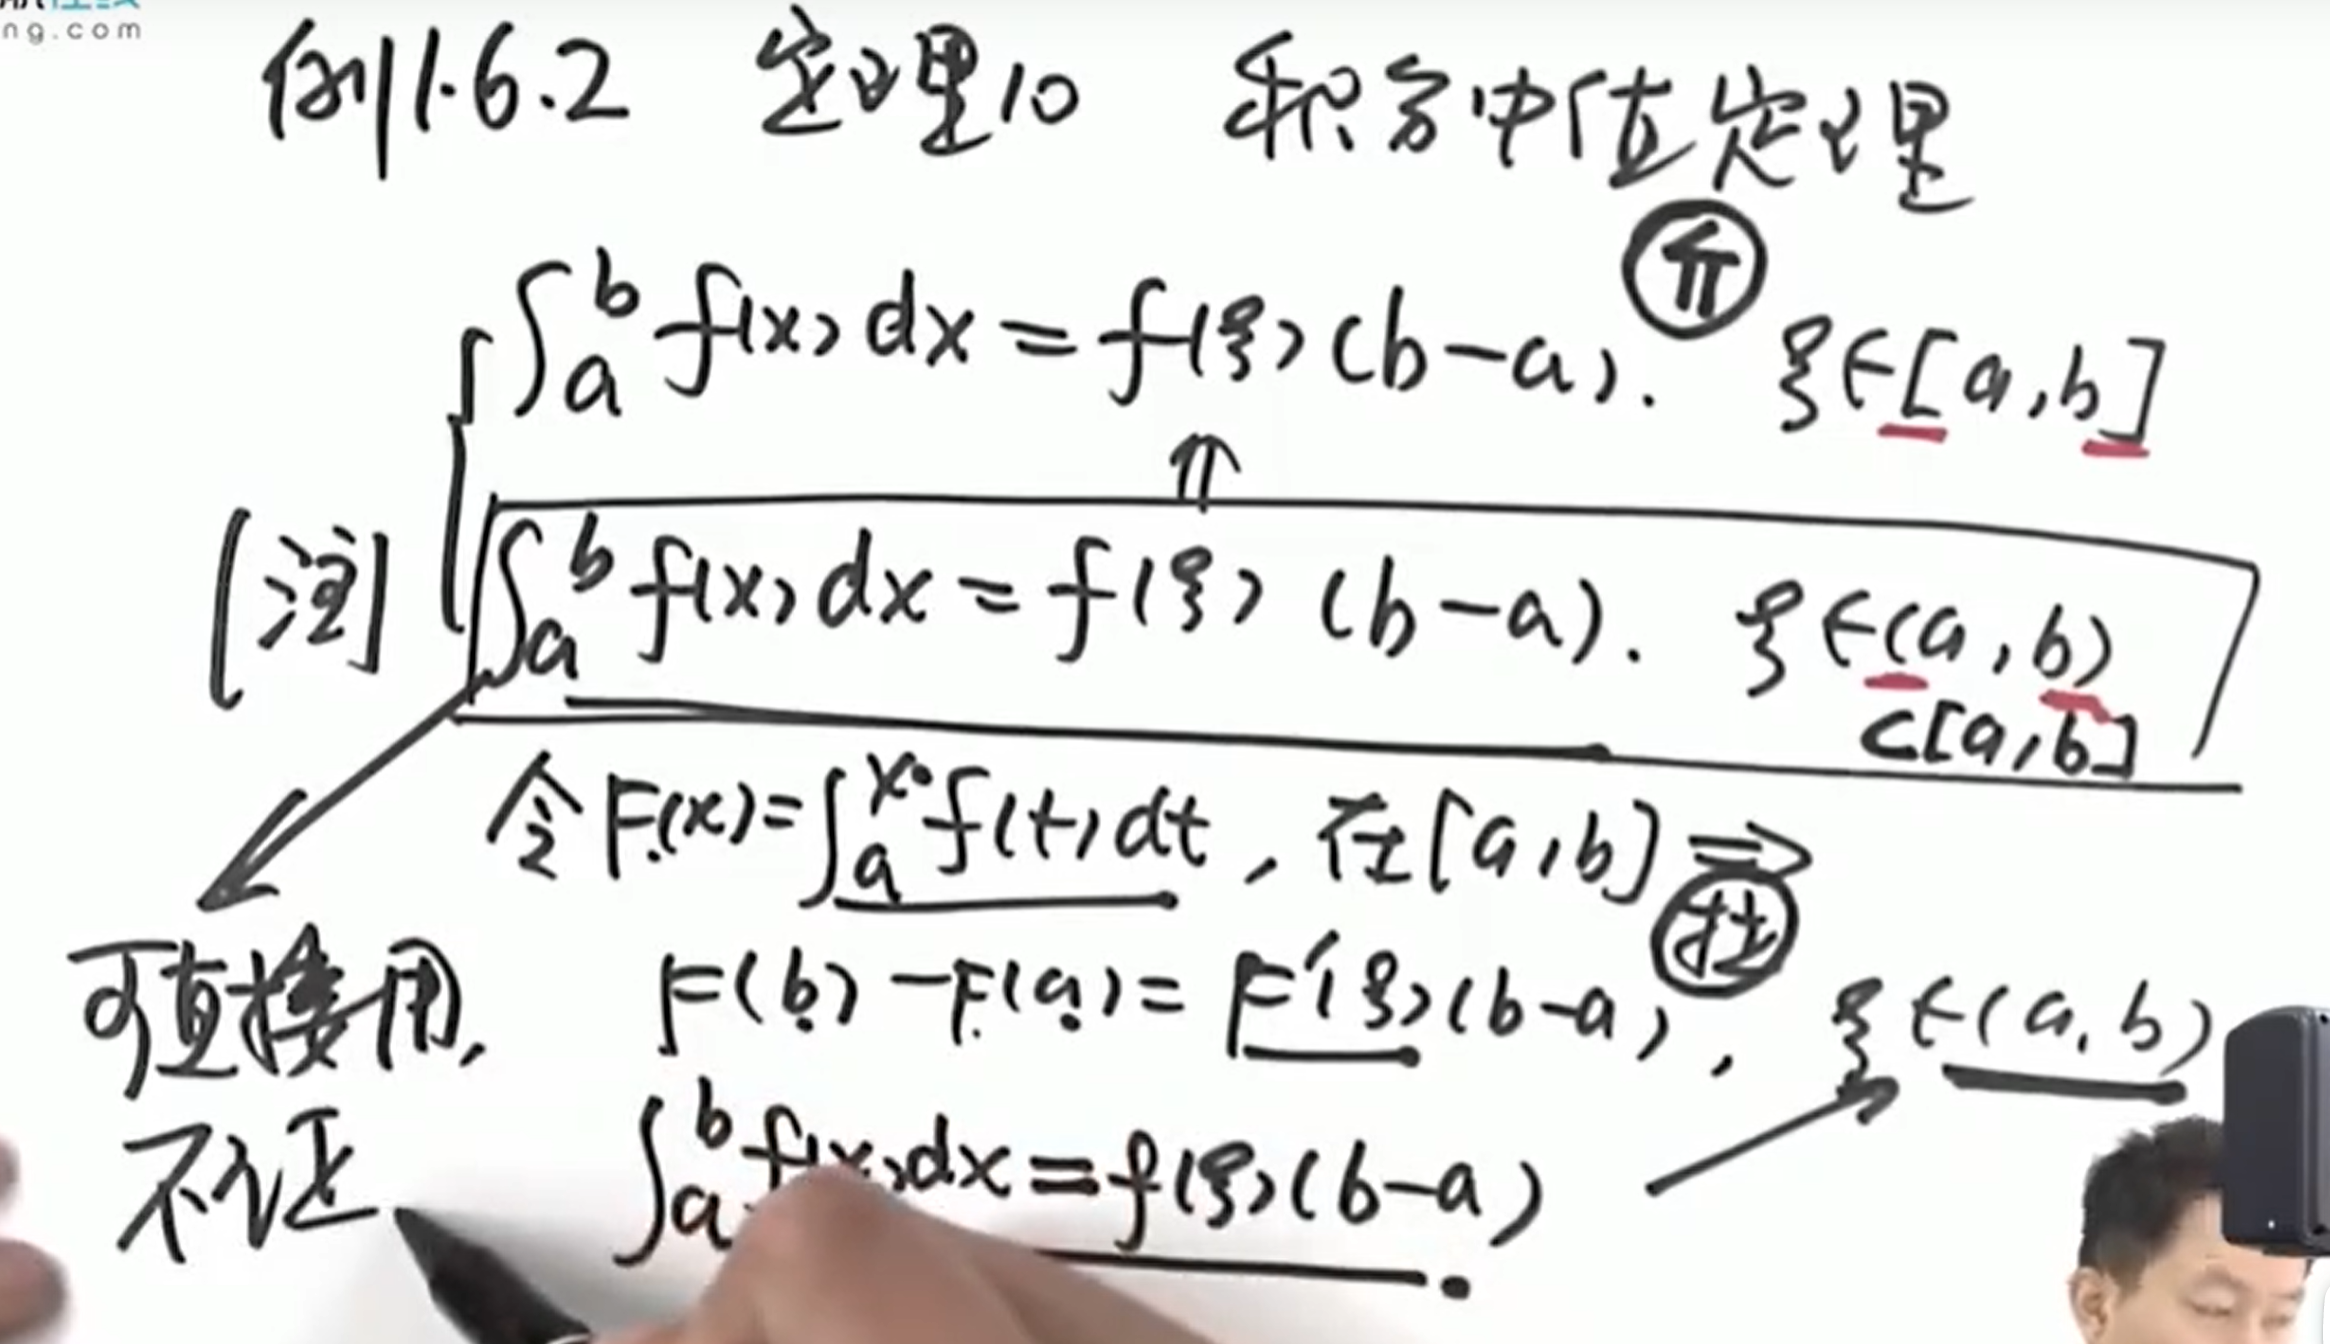 ng.com
例1.6.2 定理10 积分中值定理
∫_a^b f(x)dx = f(ξ)(b-a). 介 ξ∈[a,b]
⇑
[注] ∫_a^b f(x)dx = f(ξ)(b-a). ξ∈(a,b)
⊂[a,b]
令F(x)=∫_a^x f(t)dt, 在[a,b] ⇒
拉
可直接用, F(b)-F(a)=F'(ξ)(b-a), ξ∈(a,b)
不证 ∫_a^b f(x)dx=f(ξ)(b-a)